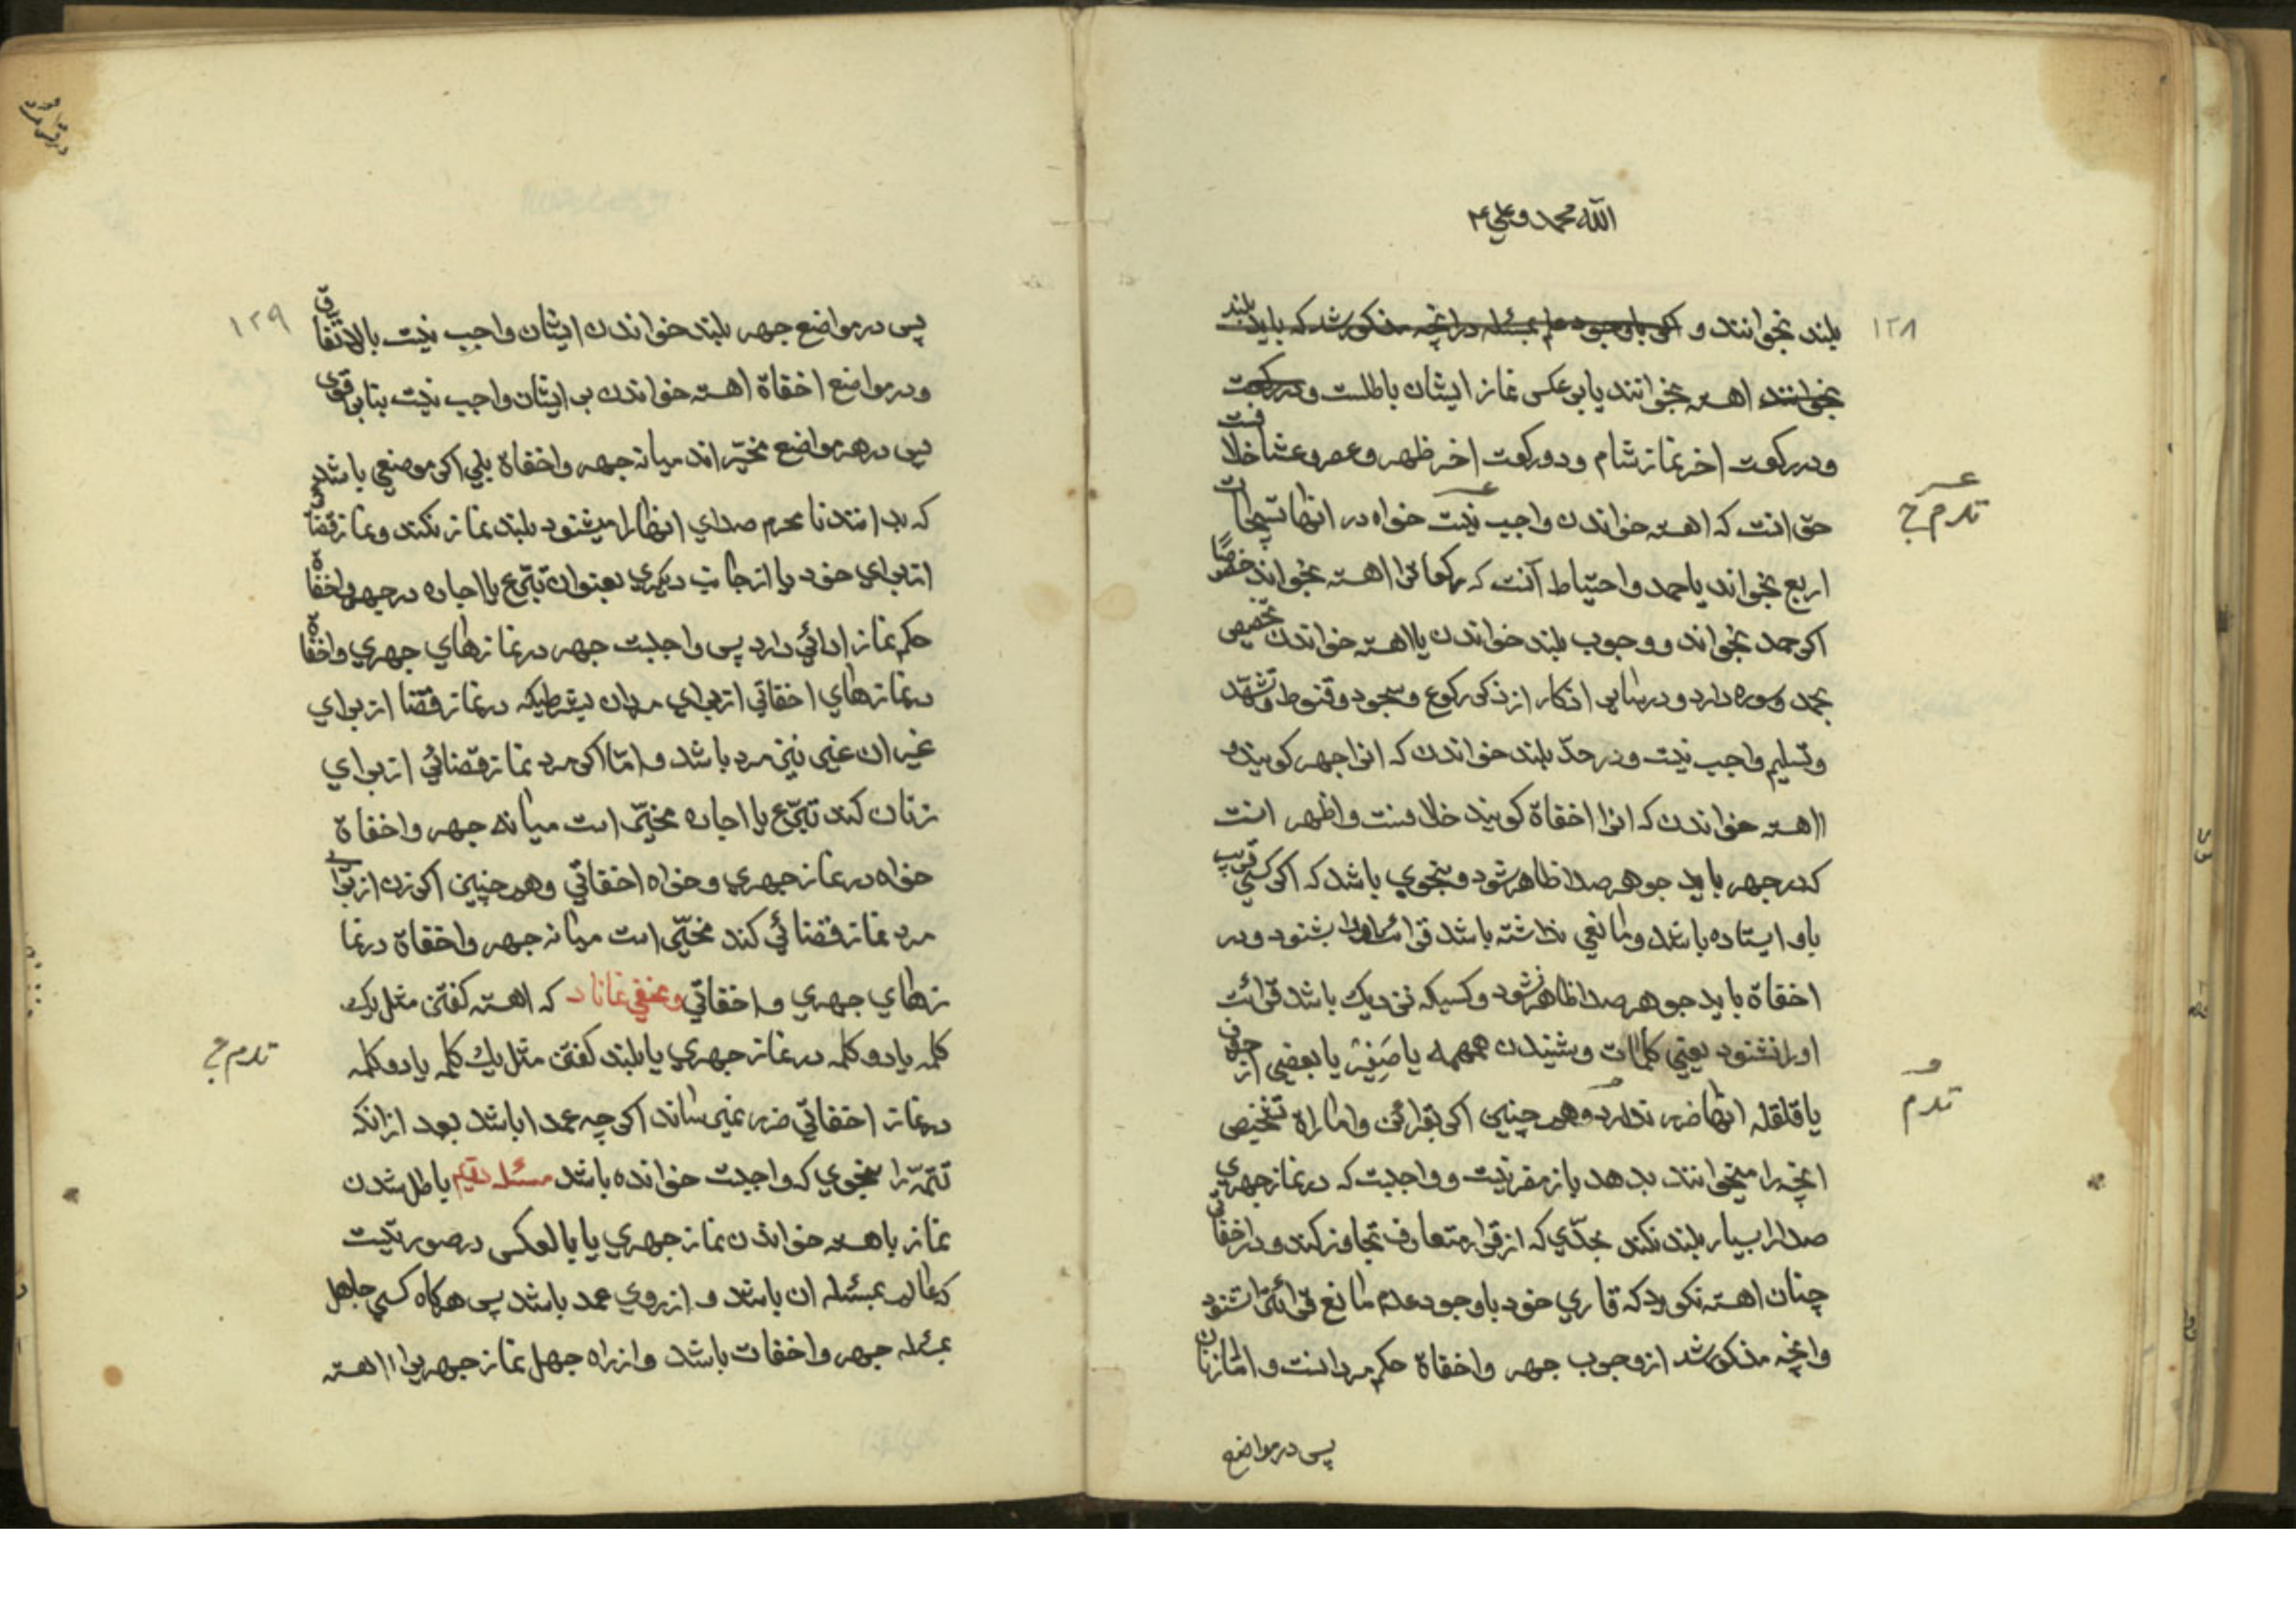 الله محمد و علی ع
۱۲۸
بلند بخوانند و اکر باوجود علم بمسئله در انچه مذکور شد که باید بلند
بخوانند اهسته بخوانند یا برعکس نماز ایشان باطلست و در رکعت
و در رکعت اخر نماز شام و دو رکعت اخر ظهر و عصر و عشا خلافست
حق انست که اهسته خواندن واجب نیست خواه در انها تسبیحات
اربع بخواند یا حمد و احتیاط آنست که رکعات را اهسته بخواند خصوصًا
اکر حمد بخواند و وجوب بلند خواندن یا اهسته خواندن تخصیص
بحمد و سوره دارد و در سایر اذکار از ذکر رکوع و سجود و قنوط و تشهّد
و تسلیم واجب نیست و در حدّ بلند خواندن که انرا جهر کویند و
اهسته خواندن که انرا اخفاة کویند خلافست و اظهر انست
که در جهر باید جوهر صدا ظاهر شود و بنحوی باشد که اکر کسی قریب
باو ایستاده باشد و مانعی نداشته باشد قرائت او را بشنود و در
اخفاة باید جوهر صدا ظاهر نشود و کسیکه نزدیک باشد قرائت
او را نشنود یعنی کلمات و شنیدن همهمه یا صَفِیْر یا بعضی از حروف
یا قلقله انها ضرر ندارد و هم چنین اکر بقرائن و اماراة تشخیص
انچه را میخوانند بدهد باز مضر نیست و واجبست که در نماز جهری
صدا را بسیار بلند نکند بحدّی که از قرار متعارف تجاوز کند و در اخفاتی
چنان اهسته نکوید که قاری خود باوجود عدم مانع قرائتش نشنود
و انچه مذکور شد از وجوب جهر و اخفاة حکم مردانست و امّا زنان
پس در مواضع
۱۲۹
پس در مواضع جهر بلند خواندن ایشان واجب نیست بالاتفاق
و در مواضع اخفاة اهسته خواندن بر ایشان واجب نیست بنابر قوی
پس در هر مواضع مخیّر اند میانه جهر و اخفاة بلی اکر موضعی باشد
که بدانند نامحرم صدای انها را میشنود بلند نماز نکند و نماز قضا
از برای خود یا از جانب دیکری بعنوان تبرّع یا اجاره در جهر و اخفاة
حکم نماز ادائی دارد پس واجبست جهر در نمازهای جهری و اخفاة
در نمازهای اخفاتی از برای مردان بشرطیکه در نماز قضا از برای
غیر ان غیر نیز مرد باشد و امّا اکر مرد نماز قضائی از برای
زنان کند تبرّع یا اجاره مخیّر است میانه جهر و اخفاة
خواه در نماز جهری و خواه اخفاتی و هم چنین اکر زن از برای
مرد نماز قضائی کند مخیّر است میانه جهر و اخفاة در نما
زهای جهری و اخفاتی و مخفی نماناد که اهسته کفتن مثل یک
کلمه یا دو کلمه در نماز جهری یا بلند کفتن مثل یک کلمه یا دو کلمه
در نماز اخفاتی ضرر نمیرساند اکر چه عمدا باشد بعد از انکه
تتمّه را بنحوی که واجبست خوانده باشد مسئله باطل شدن
نماز باهسته خواندن نماز جهری یا بالعکس در صورتیست
که عالم بمسئله ان باشد و از روی عمد باشد پس هرکاه کسی جاهل
بمسئله جهر و اخفات باشد و از راه جهل نماز جهری را اهسته